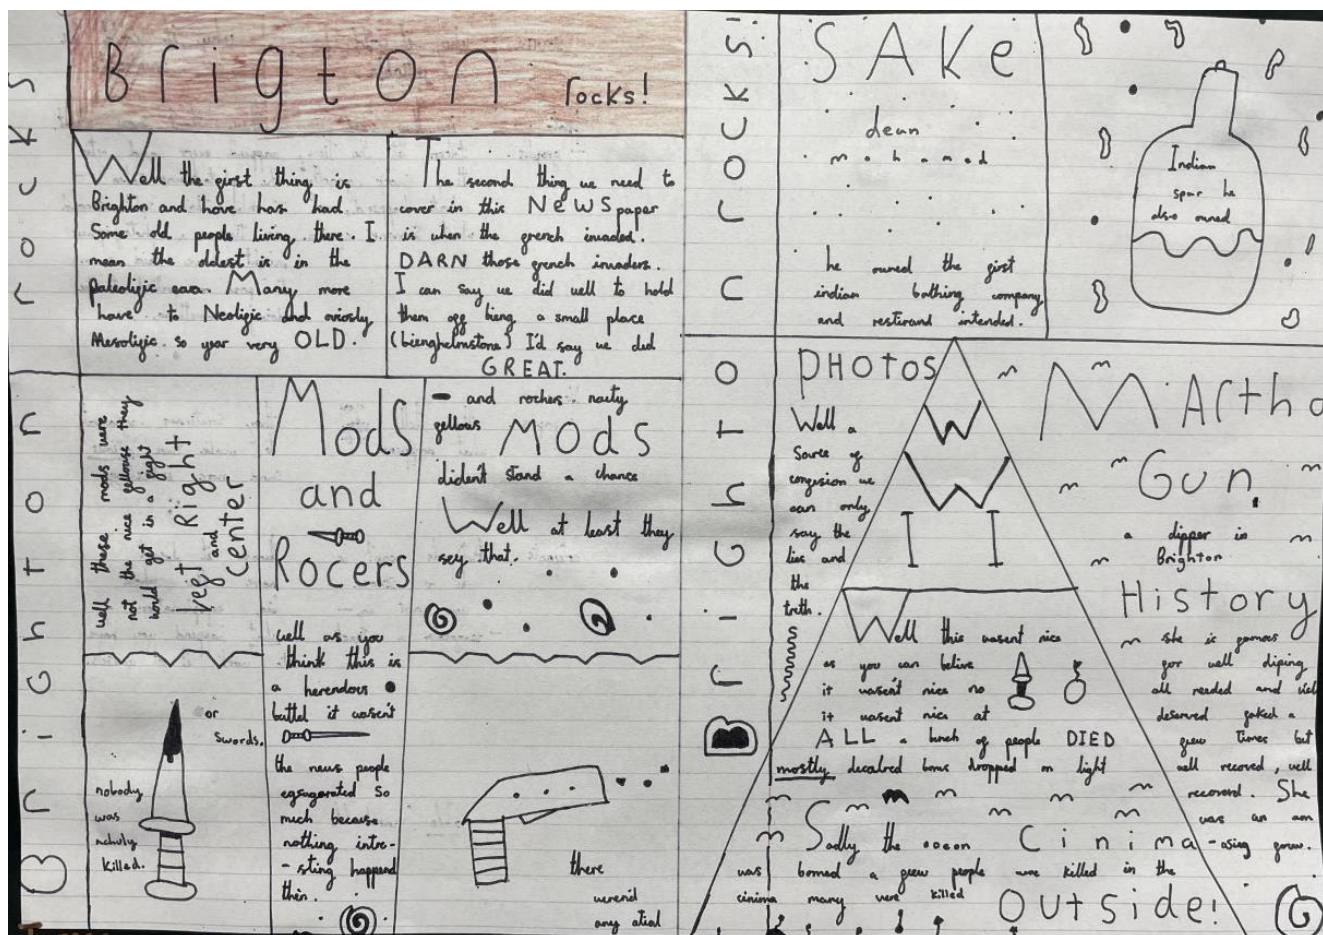 Brigton rocks!
Brighton rocks
Well the girst thing is
Brighton and hove has had
Some old people living there. I
mean the oldest is in the
paleoligic eara. Many more
have to Neoligic and oviosly
Mesoligic. so year very OLD.
The second thing we need to
cover in this NEWSpaper
is when the grench invaded.
DARN those grench invaders.
I can say we did well to hold
them ogg being a small place
(bienghelmstone) I'd say we did
GREAT.
well these mods were
not the nice gellouse they
world get in a gight
legt and Right
center
or
Swords.
nobody
was
killed.
Mods
and
Rocers
well as you
think this is
a herendous
battel it wasen't
the news people
egsagorated so
much because
nothing intre-
-sting happend
then.
- and rockers. nasty
gellows MODS
diden't stand a chance
Well at least they
say that.
there
weren'd
any atial
BriGhTOn rOCKS!
SAKe
dean
mohamed
he owned the girst
indian bathing company
and restirand intended.
Indian
spar he
also owned
PHOTOS
Well a
Source og
congusion we
can only
say the
lies and
the
truth.
W
W
I I
Well this wasent nice
as you can belive
it wasen't nice no
it wasent nice at
ALL a bunch og people DIED
mostly decalred boms dropped on light
Sadly the odeon Cinima
was bomed a gew people were killed in the
cinima many were killed
Outside!
MArtha
Gun,
a dipper in
Brighton
History
she is gamous
gor well diping
all needed and well
deserved gaked a
gew times but
well recoverd, well
recoverd. She
was an am
-asing gorw.